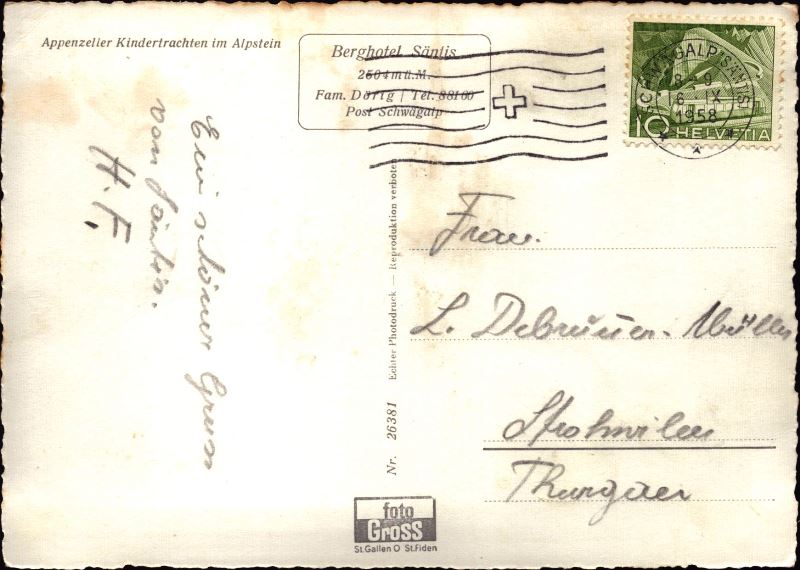 Appenzeller Kindertrachten im Alpstein
Berghotel Säntis
2504 m ü.M.
Fam. Dörig | Tel. 88160
Post Schwägalp
SCHWÄGALP (SÄNTIS)
8-9
6. X.
1958
10 HELVETIA
Ein schöner Gruss
von Säntis.
H. F.
Frau.
L. Debrunner-Müller
Strohwilen
Thurgau
Nr. 26381 Echter Photodruck — Reproduktion verboten
foto
Gross
St.Gallen O St.Fiden